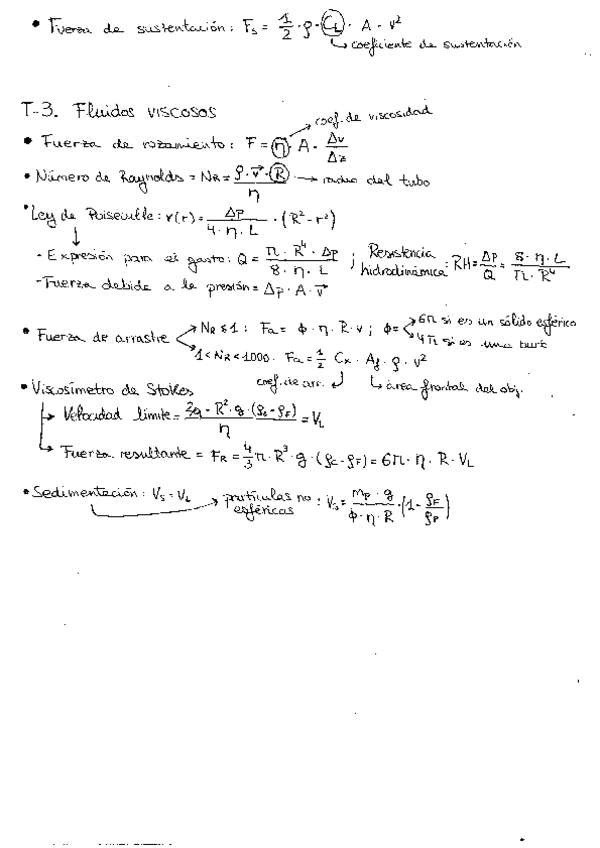 • Fuerza de sustentación: Fs = 1/2 · ρ · CL · A · v²
↳ coeficiente de sustentación
T-3. Fluidos viscosos
→ coef. de viscosidad
• Fuerza de rozamiento: F = η · A · Δv/Δz
• Número de Raynolds = NR = ρ · v̄ · R / η → radio del tubo
• Ley de Poiseuille: v(r) = Δp / 4 · η · L · (R² - r²)
↓
- Expresión para el gasto: Q = π · R⁴ · Δp / 8 · η · L ; Resistencia hidrodinámica: RH = Δp/Q = 8 · η · L / π · R⁴
- Fuerza debida a la presión = Δp · A · v̄
• Fuerza de arrastre → NR ≤ 1: Fa = φ · η · R · v ; φ = → 6π si es un sólido esférico
→ 4π si es una
→ 1 < NR < 1000. Fa = 1/2 Cx · Af · ρ · v²
coef. de arr. ↲ ↳ área frontal del obj.
• Viscosímetro de Stokes
→ Velocidad límite = · R² · g · (ρc - ρF) / η = VL
↳ Fuerza resultante = FR = 4/3 π · R³ · g · (ρc - ρF) = 6π · η · R · VL
• Sedimentación: Vs = VL → partículas no esféricas : Vs = mp · g / φ · η · R · (1 - ρF/ρP)